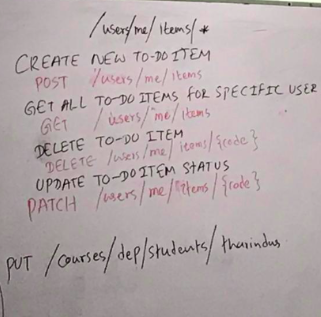 /users/me/items/*
CREATE NEW TO-DO ITEM
POST /users/me/items
GET ALL TO-DO ITEMS FOR SPECIFIC USER
GET /users/me/items
DELETE TO-DO ITEM
DELETE /users/me/items/{code}
UPDATE TO-DO ITEM STATUS
PATCH /users/me/items/{code}
PUT /courses/dep/students/tharindus